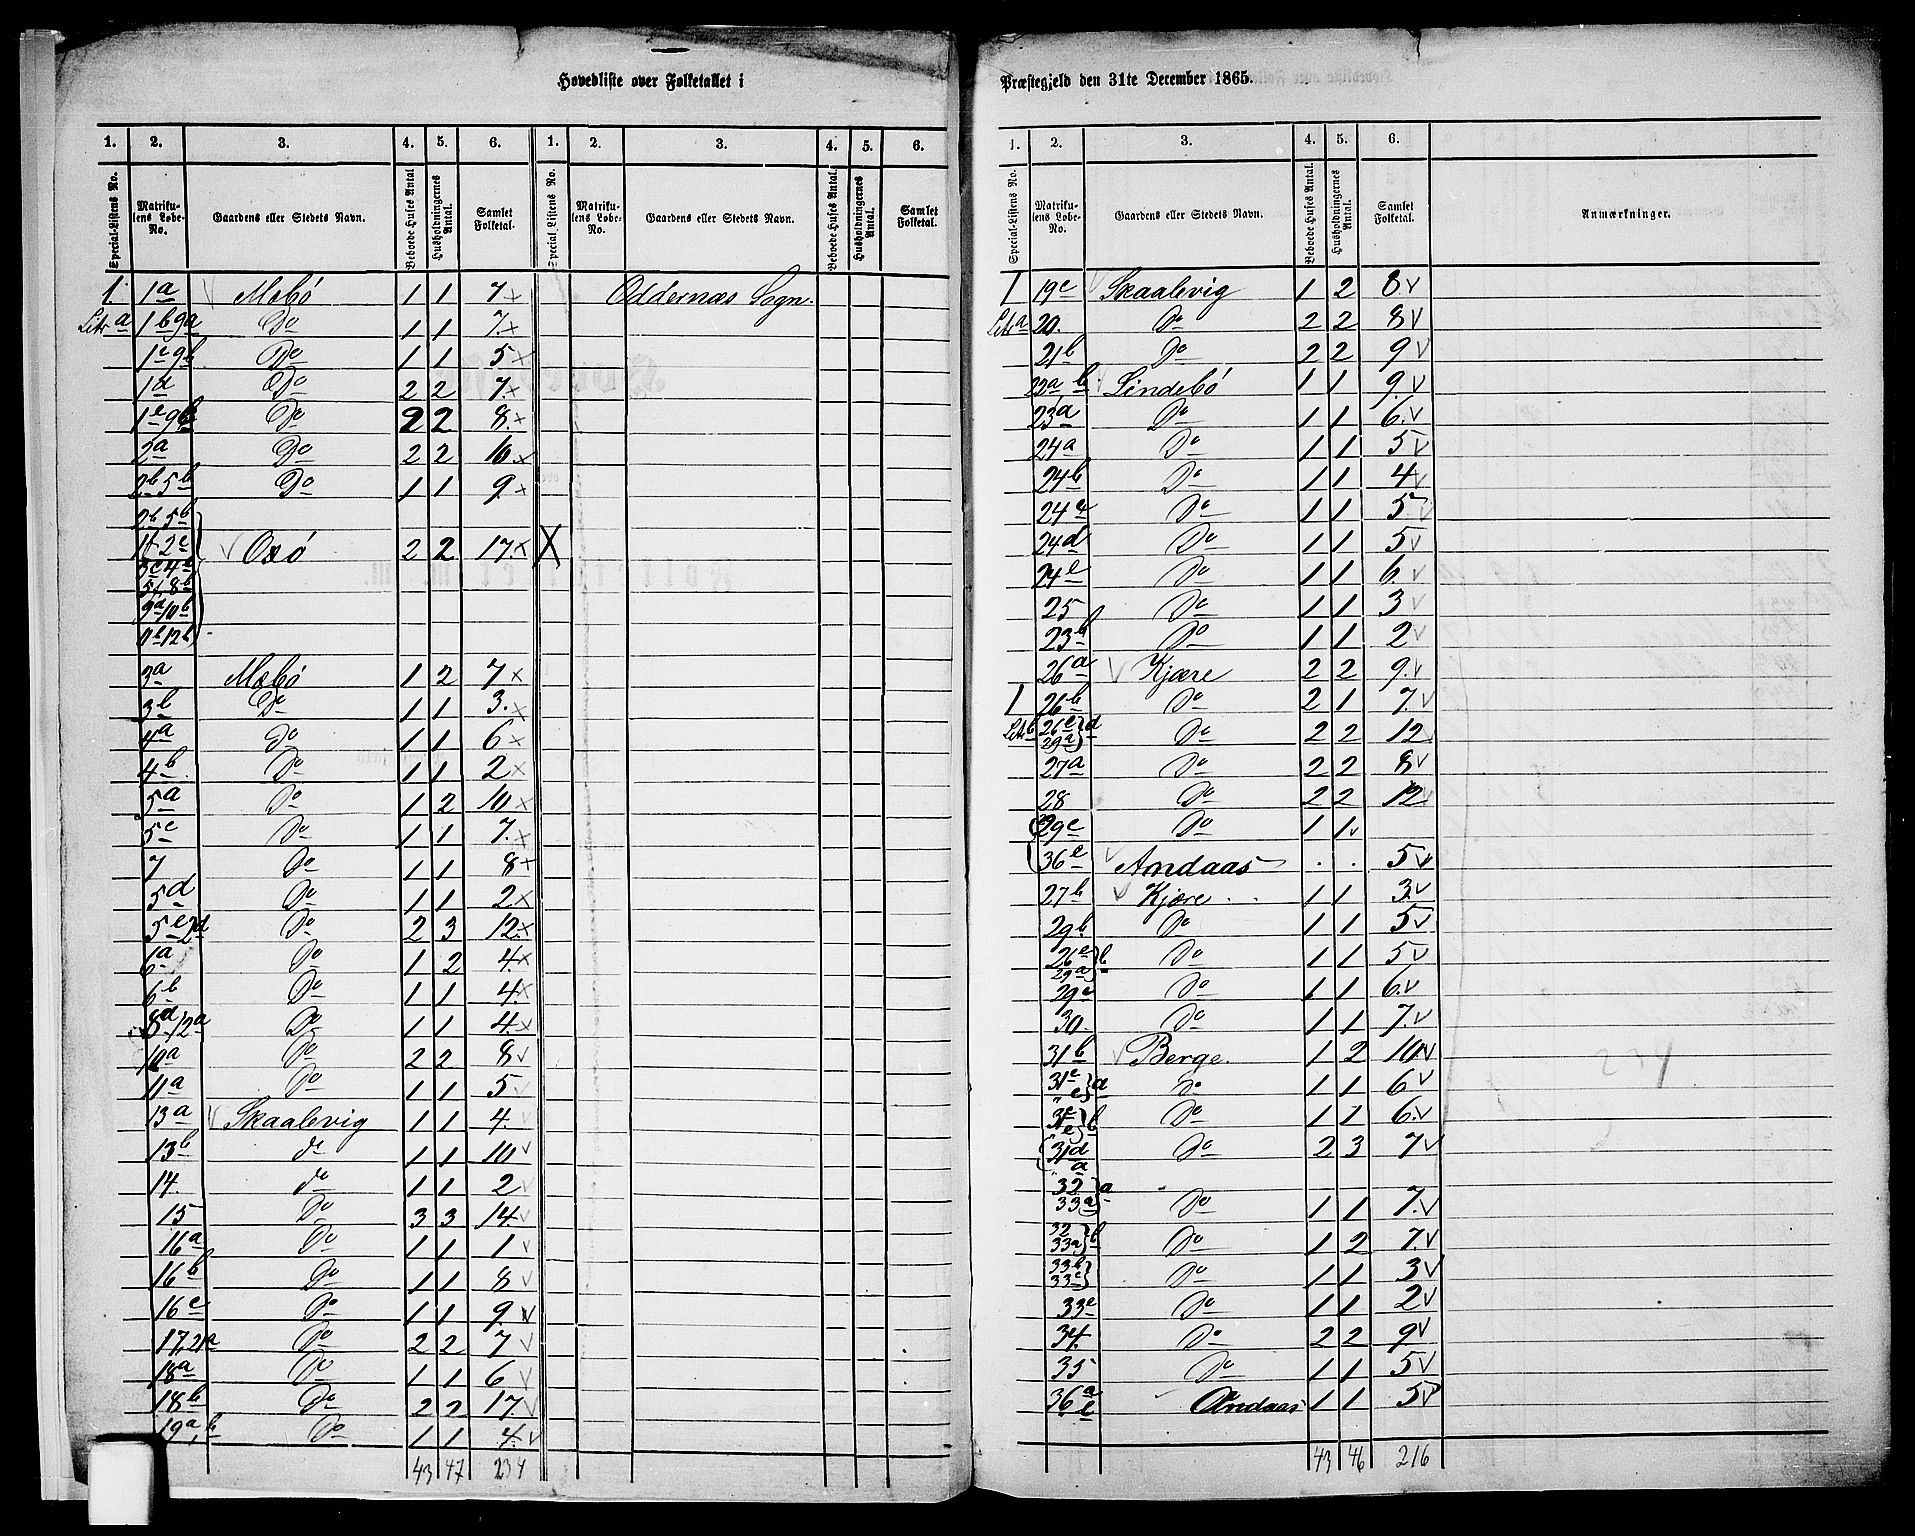 Hovedliste over Folketallet i
1. 2. 3. 4. 5. 6. 1. 2. 3. 4. 5. 6.
Special-Listens No. Matrikulens Løbe-No. Gaardens eller Stedets Navn. Beboede Huses Antal Husholdningernes Antal. Samlet Folketal. Special Listens No. Matrikulens Løbe-No. Gaardens eller Stedets Navn. Beboede Huses Antal. Husholdningernes Antal. Samlet Folketal.
1. 1a Mebö 1 1 7 x Oddernæs Sogn.
Litr a 1b 9a Do 1 1 7. x
1c 9b Do 1 1 5 x
1d Do 2 2 7. x
1e 9b Do 2 2 8. x
2a Do 2 2 10 x
2b 5b Do 1 1 9 x
2b 5b
1f 2c √ Oxö 2 2 17. x X
3c 4c
5f, 8b
9a 10b
11b 12b
3a Mebö 1 2 7 x
3b Do 1 1 3. x
4a Do 1 1 6 x
4b Do 1 1 2 x
5a Do 1 2 10 x
5c Do 1 1 7. x
7 Do 1 1 8 x
5d Do 1 1 2 x
5e 2d Do 2 3 12 x
6a Do 1 2 4. x
6b Do 1 1 4. x
8d 12a Do 1 1 4. x
10a Do 2 2 8 √
11a Do 1 1 5 √
13a √ Skaalevig 1 1 4. √
13b do 1 1 10 √
14. do 1 1 2 √
15 Do 3 3 14. √
16a Do 1 1 1 √
16b Do 1 1 8 √
16c Do 1 1 9 √
17, 21a Do 2 2 7 √
18a Do 1 1 6 √
18b Do 2 2 17. √
19a, b Do 1 1 4. √
43 47 234
Præstegjeld den 31te December 1865.
1. 2. 3. 4. 5. 6.
Special-Listens No. Matrikulens Løbe-No. Gaardens eller Stedets Navn. Beboede Huses Antal. Husholdningernes Antal. Samlet Folketal. Anmærkninger.
1 19c √ Skaalevig 1 2 8 √
Litr a 20. Do 2 2 8 √
21b Do 2 2 9 √
22a b √ Lindebö 1 1 9. √
23a Do 1 1 6. √
24a Do 1 1 5 √
24b Do 1 1 4 √
24c Do 1 1 5 √
24d Do 1 1 5 √
24e Do 1 1 6. √
25 Do 1 1 3 √
23b Do 1 1 2 √
26a √ Kjære 2 2 9. √
1 26b Do 2 1 7. √
Litr b 26c 29a } d Do 2 2 12
27a Do 2 2 8 √
28 Do 2 2 12 √
29c Do 1 1.
36c √ Andaas . . 5 √
27b √ Kjære 1 1 3. √
29b. Do 1 1 5 √
26c 29a } b Do 1 1 5 √
29c Do 1 1 6. √
30. Do 1 1 7. √
31b √ Berge. 1 2 10 √
31c " e } a Do 1 1 6 √
31c " e } b Do 1 1 6. √
31d " a Do 2 3 7 √
32 33a } a Do 1 1 7. √
32 33a } b Do 1 2 7. √
33b 33c } Do 1 1 3 √
33e Do 1 1 2 √
34. Do 2 2 9 √
35 Do 1 1 5 √
36 a e Andaas 1 1 5 √
43 46 216